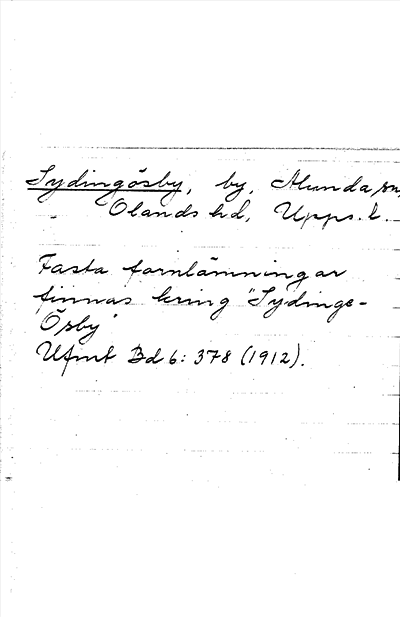 Sydingösby, by, Alunda sn,
Olands hd, Upps. l.
Fasta fornlämningar
finnas kring "Sydinge-
Ösby"
Ufmt Bd 6: 378 (1912).